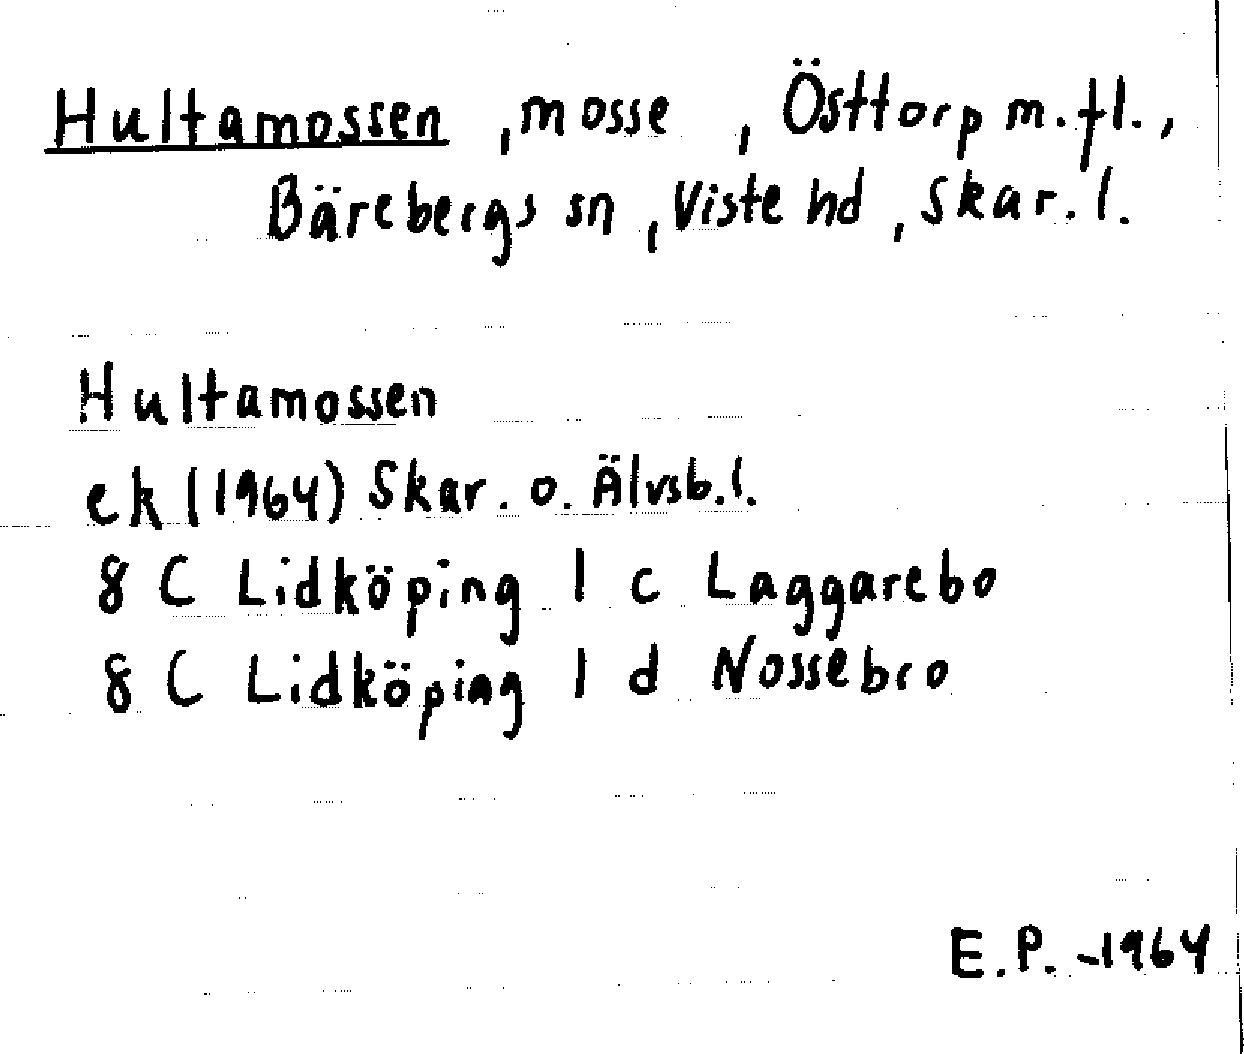 Hultamossen, mosse, Östtorp m.fl.,
Bärebergs sn, Viste hd, Skar.l.
Hultamossen
ek (1964) Skar. o. Älvsb.l.
8 C Lidköping 1 c Laggarebo
8 C Lidköping 1 d Nossebro
E.P. -1964